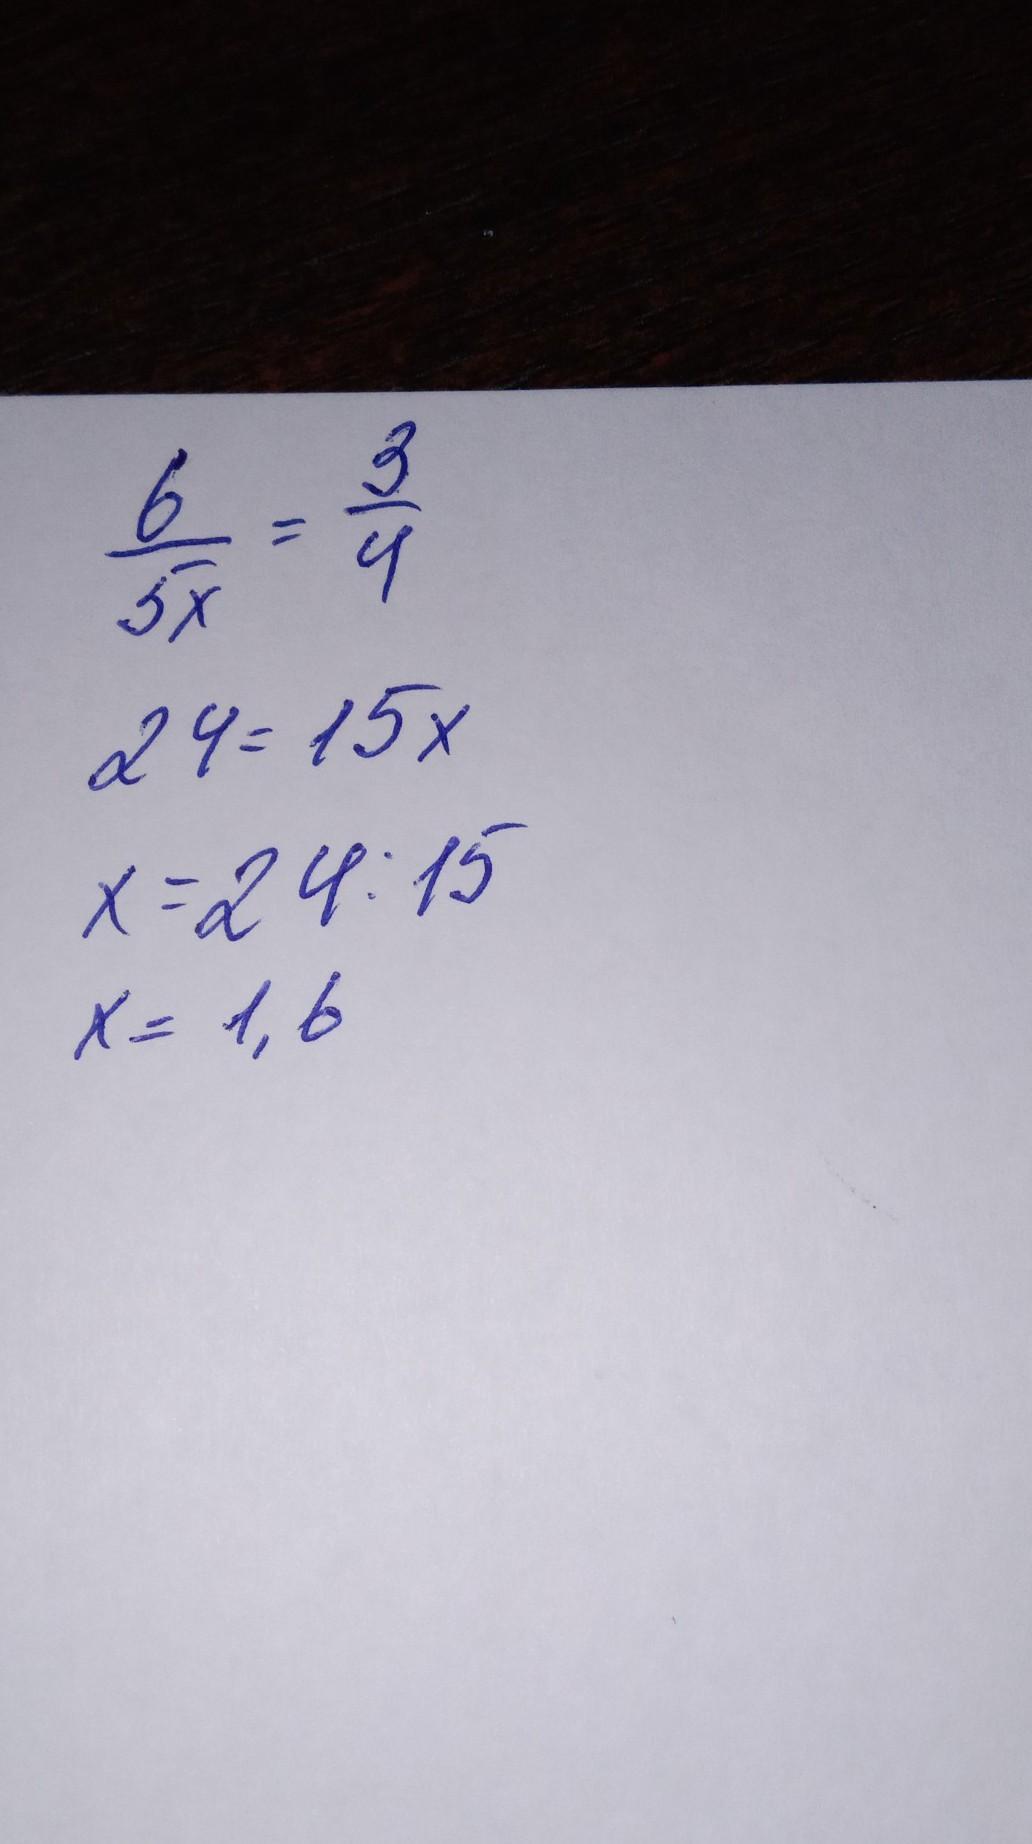 6/5x = 3/4
24=15x
x=24:15
x=1,6